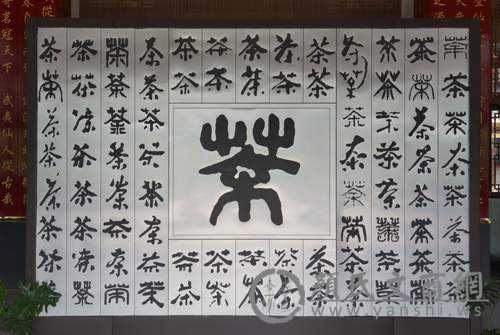 奇茗冠天下 武夷仙人從古栽
茶茶茶茶茶茶茶茶茶茶茶茶茶
茶茶茶茶茶茶茶茶茶茶茶茶茶
茶茶茶茶茶茶茶茶
茶茶茶茶茶茶茶茶
茶
茶茶茶茶茶茶茶茶
茶茶茶茶茶茶茶茶
茶茶茶茶茶茶茶茶茶茶茶茶茶
茶茶茶茶茶茶茶茶茶茶茶茶茶
www.yanshi.